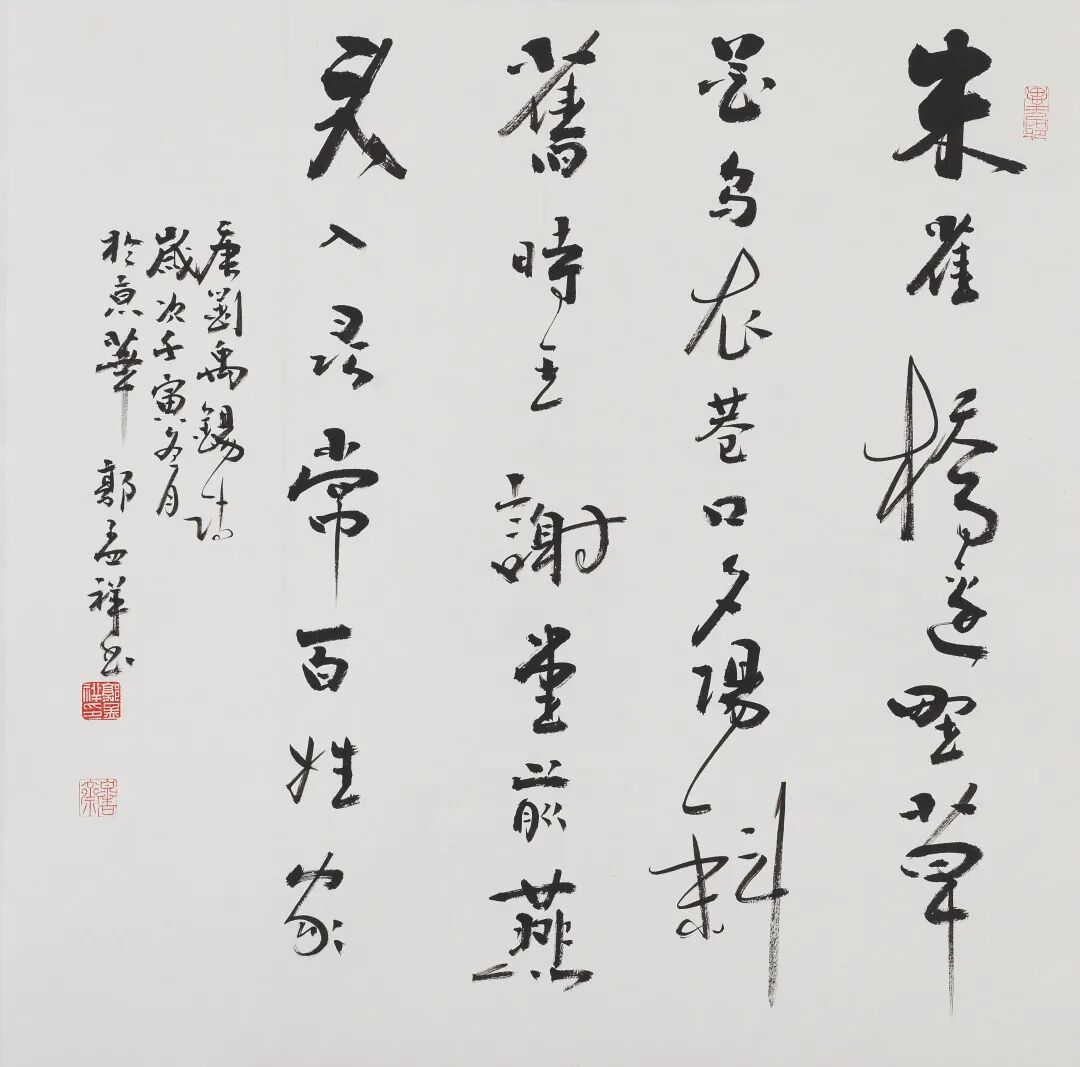 朱雀橋邊野草
花烏衣巷口夕陽斜
舊時王謝堂前燕
飛入尋常百姓家
唐劉禹錫詩
歲次壬寅冬月
於京華 郭孟祥書
郭孟祥印